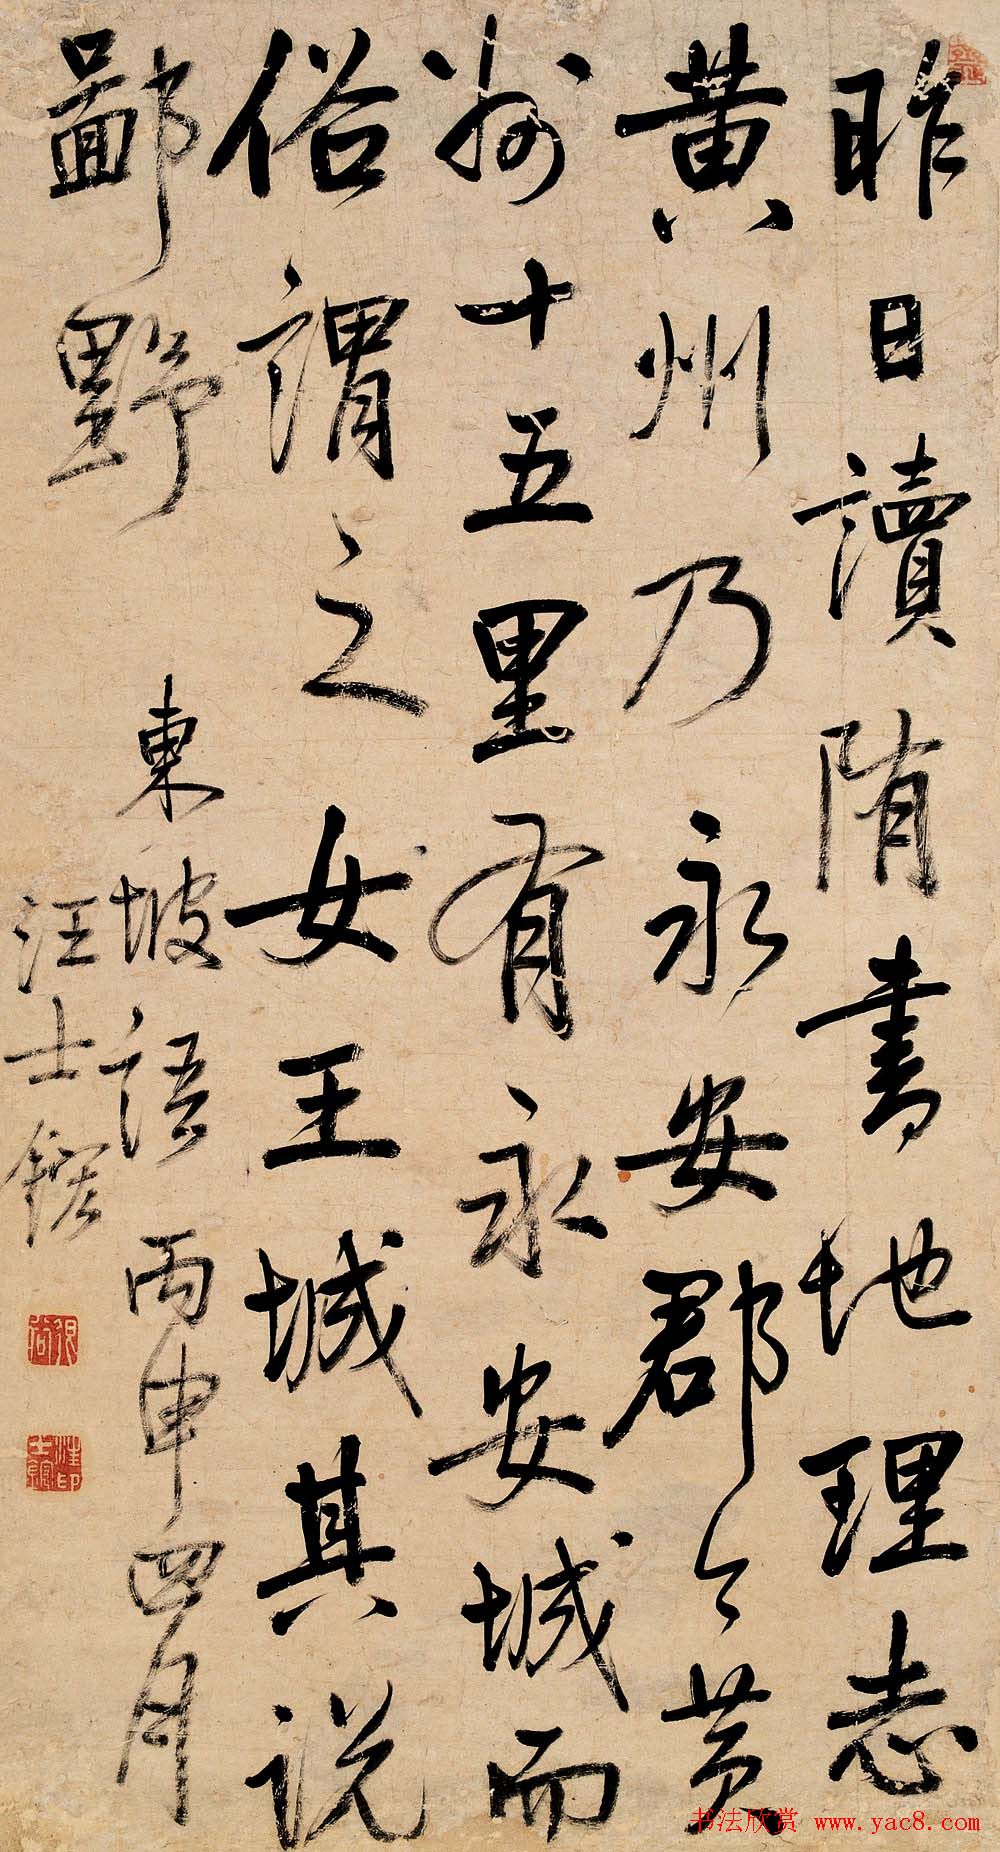 昨日讀隋書地理志
黃州乃永安郡今黃
州十五里有永安城而
俗謂之女王城其說
鄙野
東坡語丙申四月
汪士鋐
书法欣赏 www.yac8.com